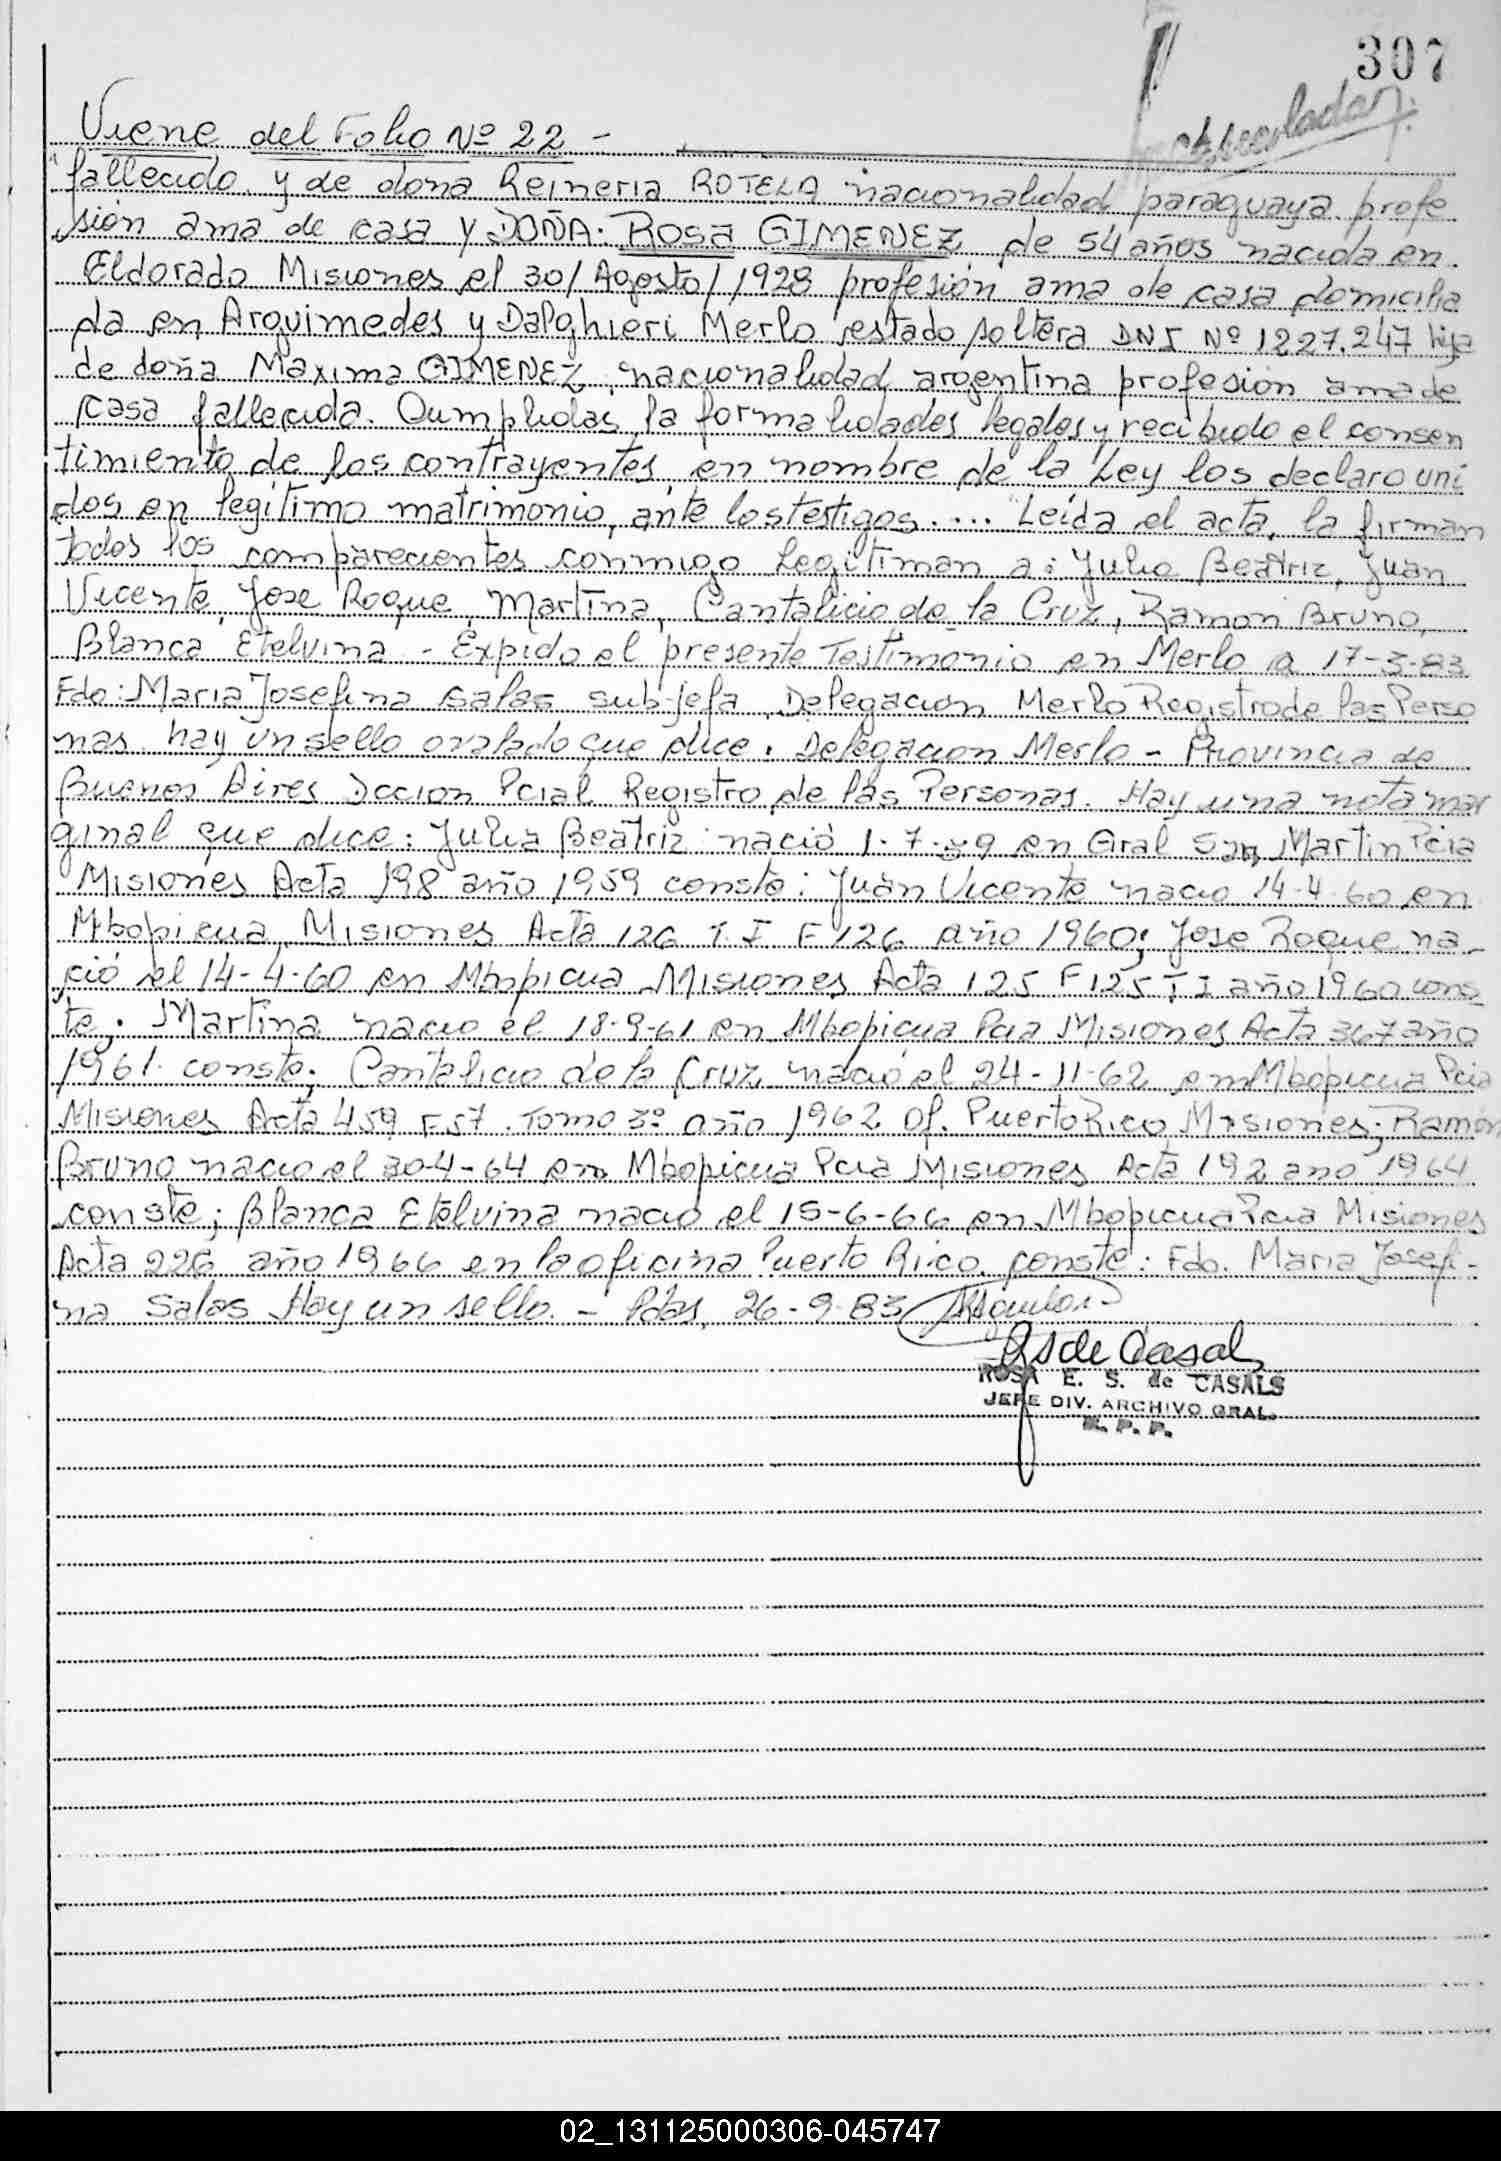 307
Viene del Folio Nº 22 -
fallecido y de dona Reineria ROTELA nacionalidad paraguaya profe
sión ama de casa y DOÑA: ROSA GIMENEZ de 54 años nacida en
Eldorado Misiones el 30/Agosto/1928 profesión ama de casa domicilia
da en Arquimedes y Dalghieri Merlo estado soltera DNI Nº 1227.247 hija
de doña Maxima GIMENEZ, nacionalidad argentina profesion ama de
casa fallecida. Cumplidas la formalidades legales y recibido el consen
timiento de los contrayentes en nombre de la Ley los declaro uni
dos en legítimo matrimonio, ante los testigos.... Leída el acta, la firman
todos los comparecientes conmigo Legitiman a: Julia Beatriz, Juan
Vicente, Jose Roque, Martina, Cantalicio de la Cruz, Ramon Bruno,
Blanca Etelvina - Expido el presente Testimonio en Merlo a 17-3-83
Fdo: Maria Josefina Salas sub-jefa Delegacion Merlo Registro de las Perso
nas. hay un sello ovalado que dice. Delegacion Merlo - Provincia de
Buenos Aires Dccion Pcial Registro de las Personas. Hay una nota mar
ginal que dice: Julia Beatriz nació 1-7-59 en Gral San Martin Pcia
Misiones Acta 198 año 1959 conste: Juan Vicente nacio 14-4-60 en
Mbopicua Misiones Acta 126 T. I F 126 año 1960; Jose Roque na-
ció el 14-4-60 en Mbopicua Misiones Acta 125 F 125 T I año 1960 cons
te; Martina nacio el 18-9-61 en Mbopicua Pcia Misiones Acta 367 año
1961. conste; Cantalicio de la Cruz nació el 24-11-62 en Mbopicua Pcia
Misiones Acta 459 F.57 Tomo 3º año 1962 Of. Puerto Rico Misiones; Ramón
Bruno nacio el 30-4-64 en Mbopicua Pcia Misiones Acta 192 ano 1964
conste; Blanca Etelvina nacio el 15-6-66 en Mbopicua Pcia Misiones
Acta 226 año 1966 en la oficina Puerto Rico conste: Fdo. Maria Josefi-
na Salas Hay un sello. - Pdas, 26-9-83
RS de Casals
ROSA E. S. de CASALS
JEFE DIV. ARCHIVO GRAL.
R. P. P.
02_131125000306-045747